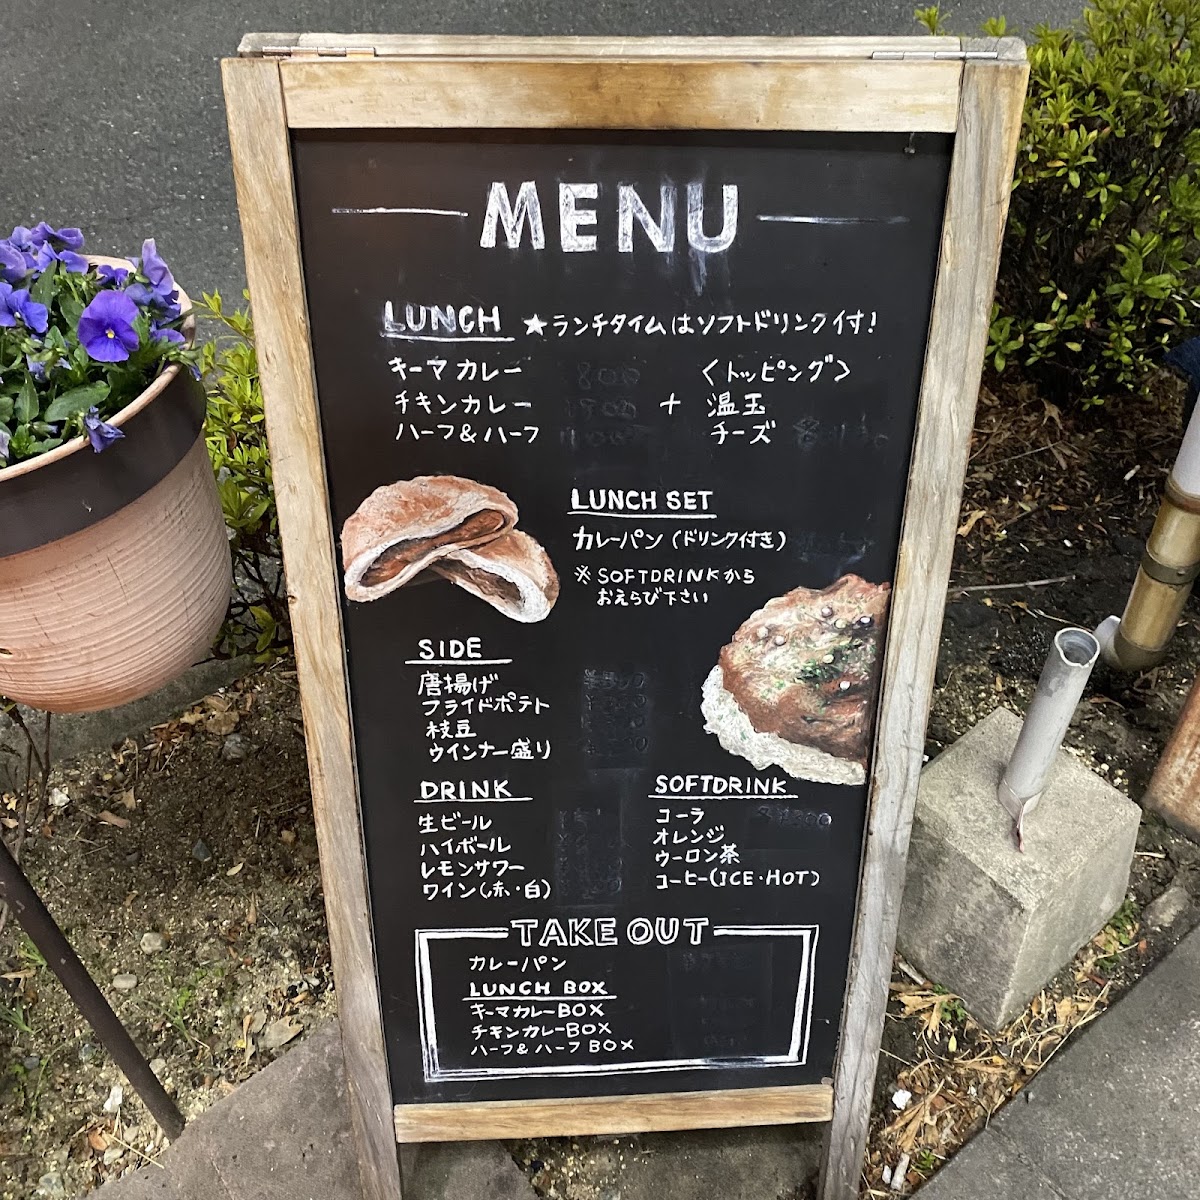 MENU
LUNCH ★ランチタイムはソフトドリンク付!
キーマカレー 800 <トッピング>
チキンカレー + 温玉
ハーフ&ハーフ チーズ
LUNCH SET
カレーパン(ドリンク付き)
※SOFTDRINKから
おえらび下さい
SIDE
唐揚げ
フライドポテト
枝豆
ウインナー盛り
DRINK
生ビール
ハイボール
レモンサワー
ワイン(赤・白)
SOFTDRINK
コーラ
オレンジ
ウーロン茶
コーヒー(ICE・HOT)
TAKE OUT
カレーパン
LUNCH BOX
キーマカレーBOX
チキンカレーBOX
ハーフ&ハーフBOX